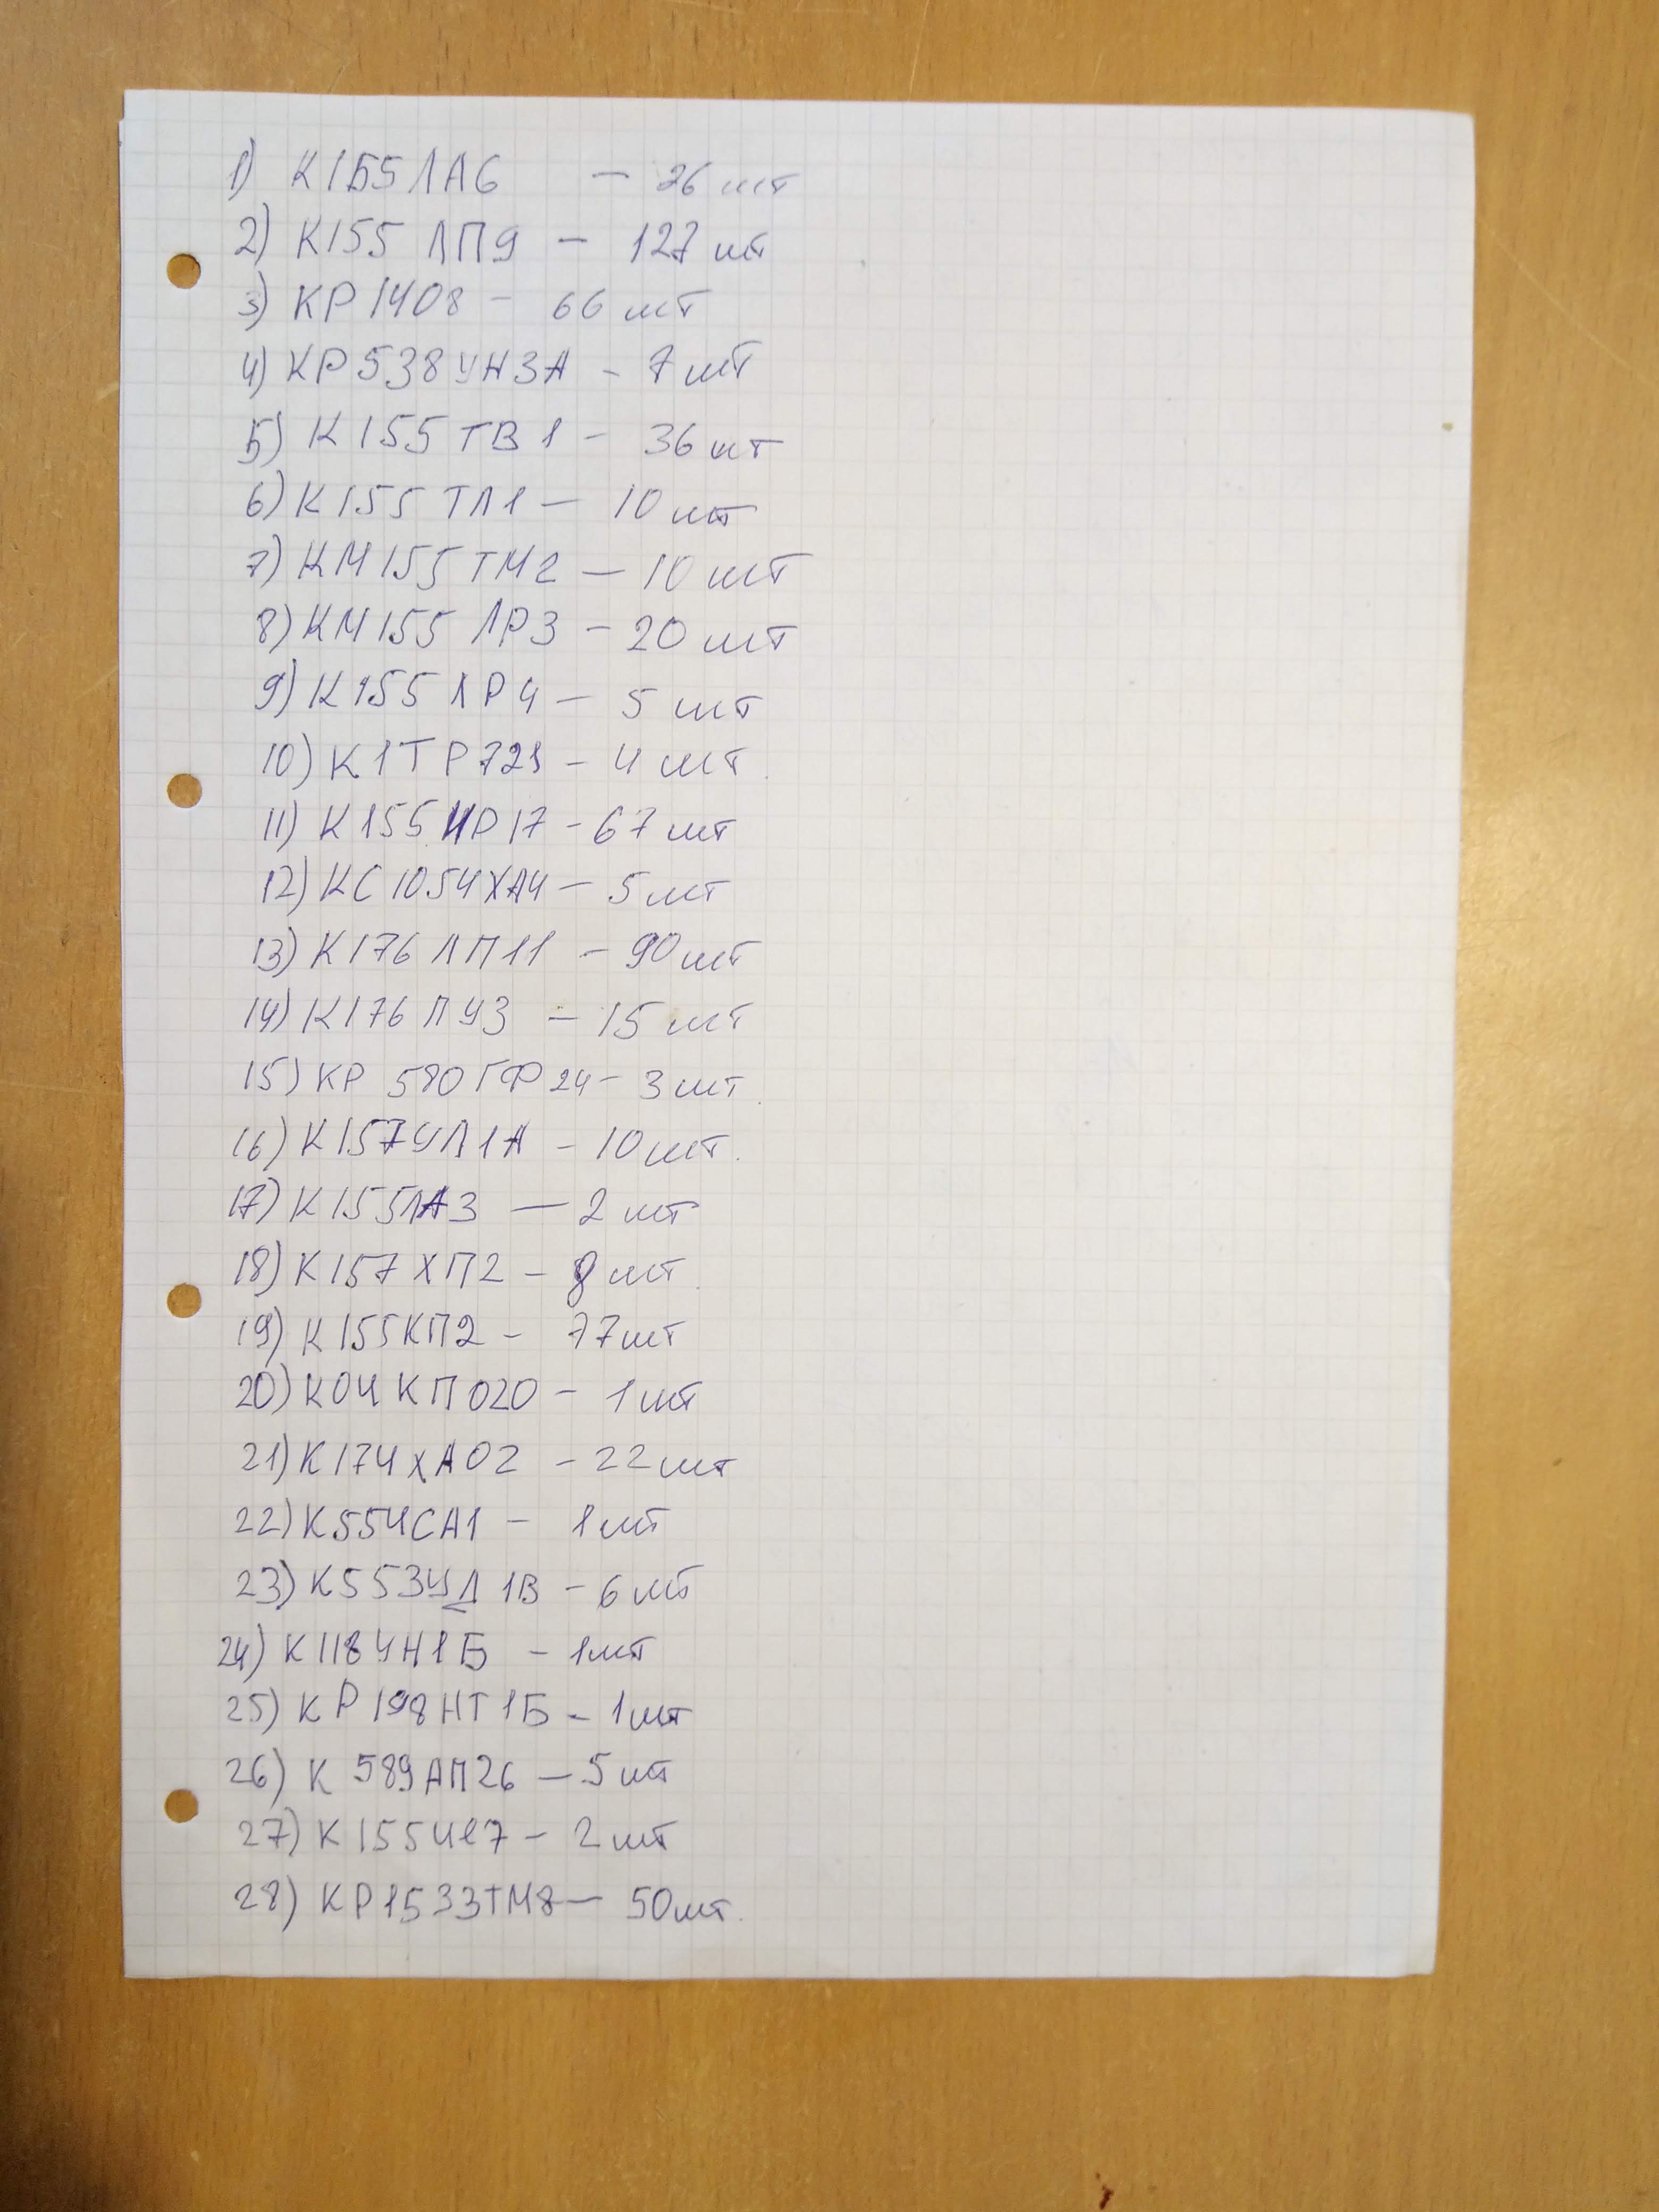 1) К155ЛА6 — 26 шт
2) К155 ЛП9 — 127 шт
3) КР1408 — 66 шт
4) КР538УН3А - 7 шт
5) К155ТВ1 - 36 шт
6) К155 ТЛ1 — 10 шт
7) КМ155ТМ2 — 10 шт
8) КМ155 ЛР3 — 20 шт
9) К155ЛР4 — 5 шт
10) К1ТР721 - 4 шт.
11) К155ИР17 - 67 шт
12) КС1054ХА4 — 5 шт
13) К176 ЛП11 - 90 шт
14) К176 ПУ3 — 15 шт
15) КР 580ГФ24 - 3 шт.
16) К157УЛ1А - 10 шт.
17) К155ЛА3 — 2 шт
18) К157ХП2 - 8 шт.
19) К155КП2 - 77 шт
20) К04КП020 - 1 шт
21) К174ХА02 - 22 шт
22) К554СА1 - 1 шт
23) К553УД1В - 6 шт
24) К118УН1Б - 1 шт
25) КР198НТ1Б - 1 шт
26) К 589АП26 — 5 шт
27) К155ИЕ7 - 2 шт
28) КР1533ТМ8 — 50 шт.